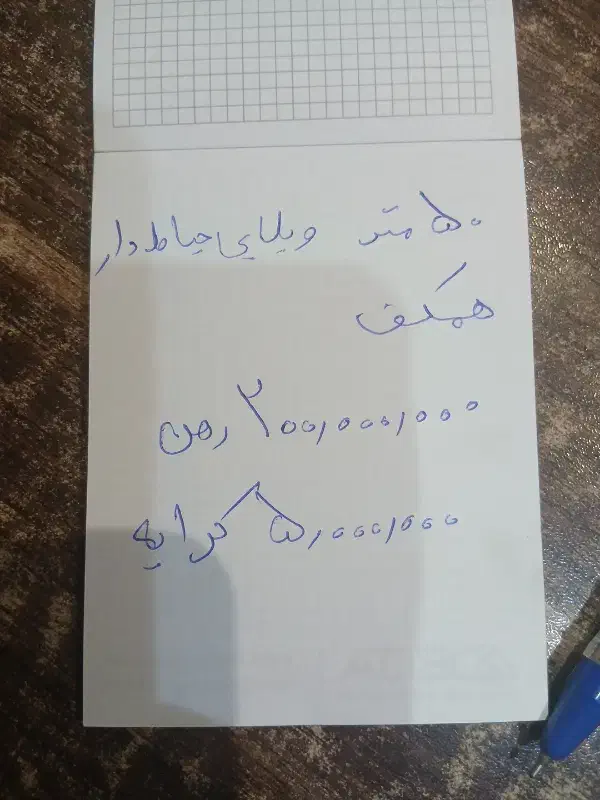 ۵۰ متر ویلایی حیاط دار
همکف
۲۰۰,۰۰۰,۰۰۰ رهن
۵,۰۰۰,۰۰۰ کرایه